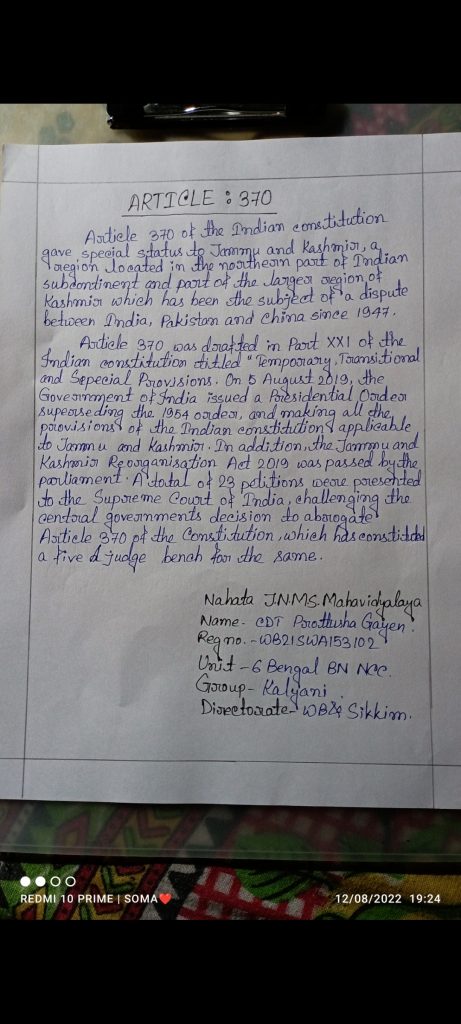 ARTICLE : 370
Article 370 of the Indian constitution
gave special status to Jammu and Kashmir, a
region located in the northern part of Indian
subcontinent and part of the larger region of
Kashmir which has been the subject of a dispute
between India, Pakistan and China since 1947.
Article 370 was drafted in Part XXI of the
Indian constitution titled "Temporary, Transitional
and Sepecial Provisions. On 5 August 2019, the
Government of India issued a Presidential Order
superseding the 1954 order, and making all the
provisions of the Indian constitution applicable
to Jammu and Kashmir. In addition, the Jammu and
Kashmir Reorganisation Act 2019 was passed by the
parliament. A total of 23 petitions were presented
to the Supreme Court of India, challenging the
central governments decision to abrogate
Article 370 of the Constitution, which has constituted
a five judge bench for the same.
Nahata J.N.M.S. Mahavidyalaya
Name- CDT Prottusha Gayen.
Reg no.-WB21SWA153102
Unit - 6 Bengal BN NCC.
Group- Kalyani.
Directorate- WB& Sikkim.
REDMI 10 PRIME | SOMA❤️
12/08/2022 19:24